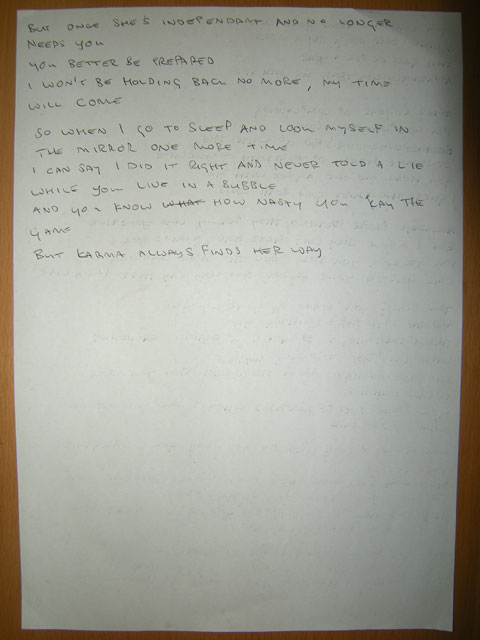 BUT ONCE SHE'S INDEPENDANT AND NO LONGER
NEEDS YOU
YOU BETTER BE PREPARED
I WON'T BE HOLDING BACK NO MORE, MY TIME
WILL COME
SO WHEN I GO TO SLEEP AND LOOK MYSELF IN
THE MIRROR ONE MORE TIME
I CAN SAY I DID IT RIGHT AND NEVER TOLD A LIE
WHILE YOU LIVE IN A BUBBLE
AND YOU KNOW WHAT HOW NASTY YOU PLAY THE
GAME
BUT KARMA ALWAYS FINDS HER WAY